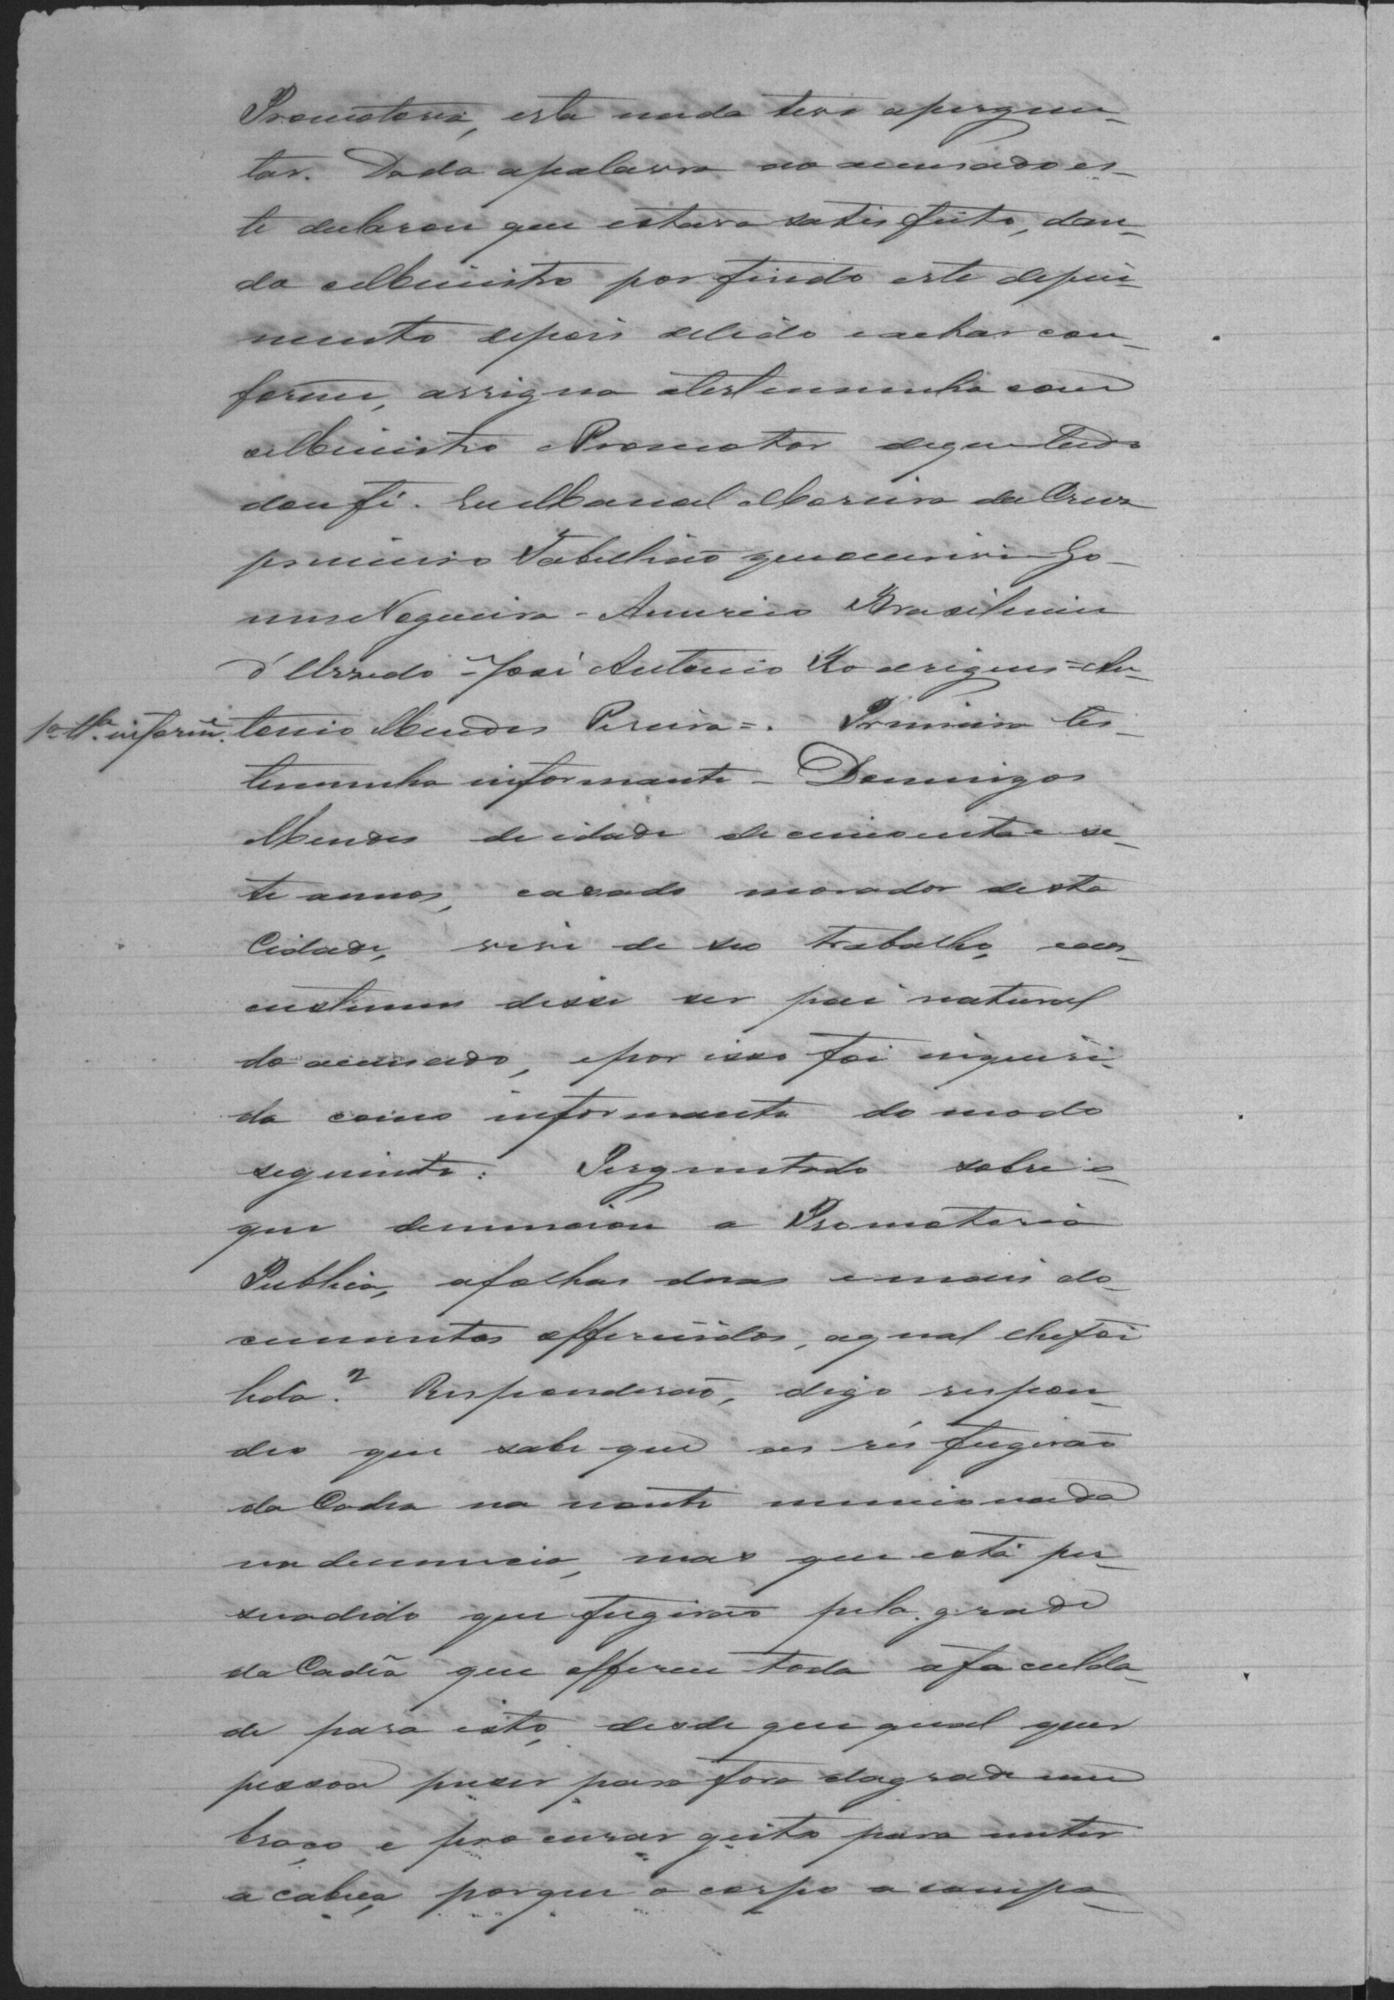 Promotoria, esta nada teve a pergun-
tar. Dada a palavra ao accusado es-
te declarou que estava satisfeito, dan-
do o Ministro por findo este depoi
mento depois de lido e achar con-
forme, assigna a testemunha com
o Ministro e Promotor de que tudo
dou fé. Eu Manoel Moreira da Cruz
primeiro Tabellião que escrevi - Go-
mes Nogueira - Americo Brasileiro
d'Azevedo - José Antonio Rodrigues = An-
1ª tª informe. tonio Mendes Pereira =. Primeira tes-
temunha informante - Domingos
Mendes de idade de cincoenta e se-
te annos, casado morador desta
Cidade, vive de seo trabalho, aos
custumes disse ser pai natural
do accusado, e por isso foi inqueri-
da como informante do modo
seguinte: Perguntado sobre o
que denunciou a Promotoria
Publica, a folhas duas e mais do-
cumentos offerecidos, a qual lhe foi
lida? Responderão, digo respon-
deo que sabe que os réos fugirão
da Cadea na noute mencionada
na denuncia, mas que está per-
suadido que fugirão pela grade
da Cadêa que offerece toda a faculda-
de para isto, desde que qual quer
pessoa puser para fora da grade um
braço e procurar geito para meter
a cabeça porque o corpo acompa-